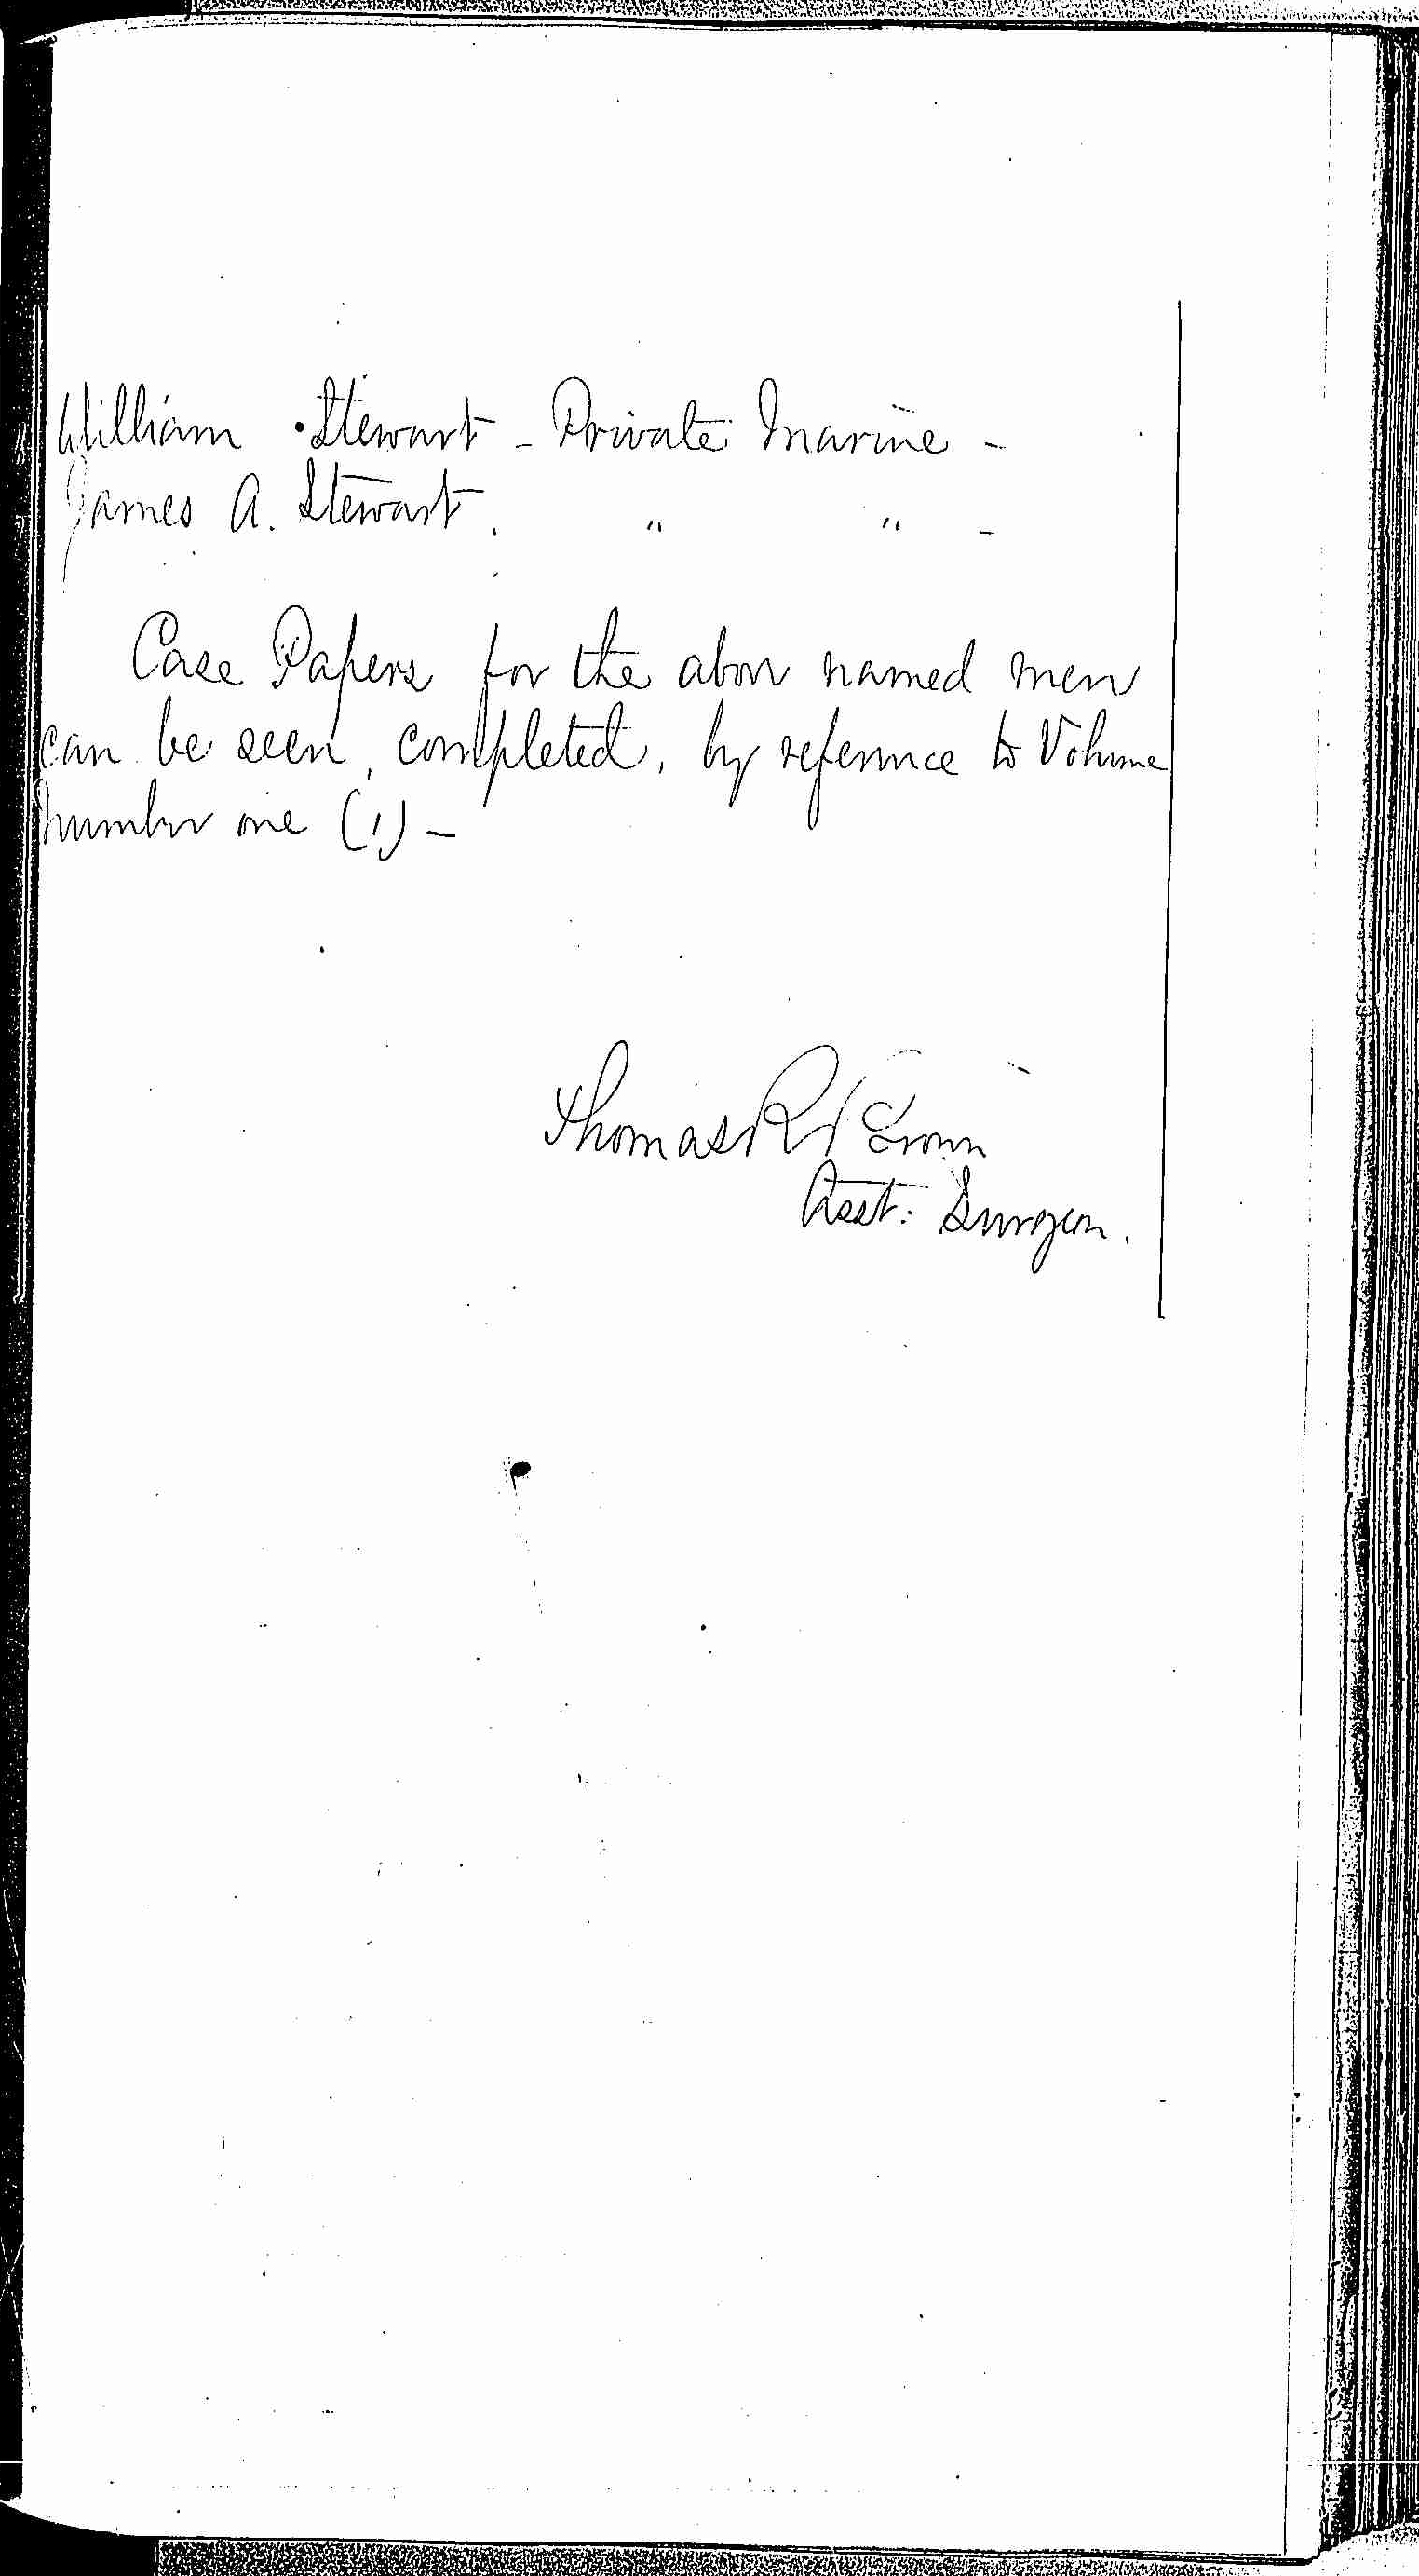 William Stewart - Private Marine -
James A. Stewart. " " -
Case Papers for the above named men
can be seen, completed, by reference to Volume
number one (1) -
Thomas R Brown
Asst: Surgeon.